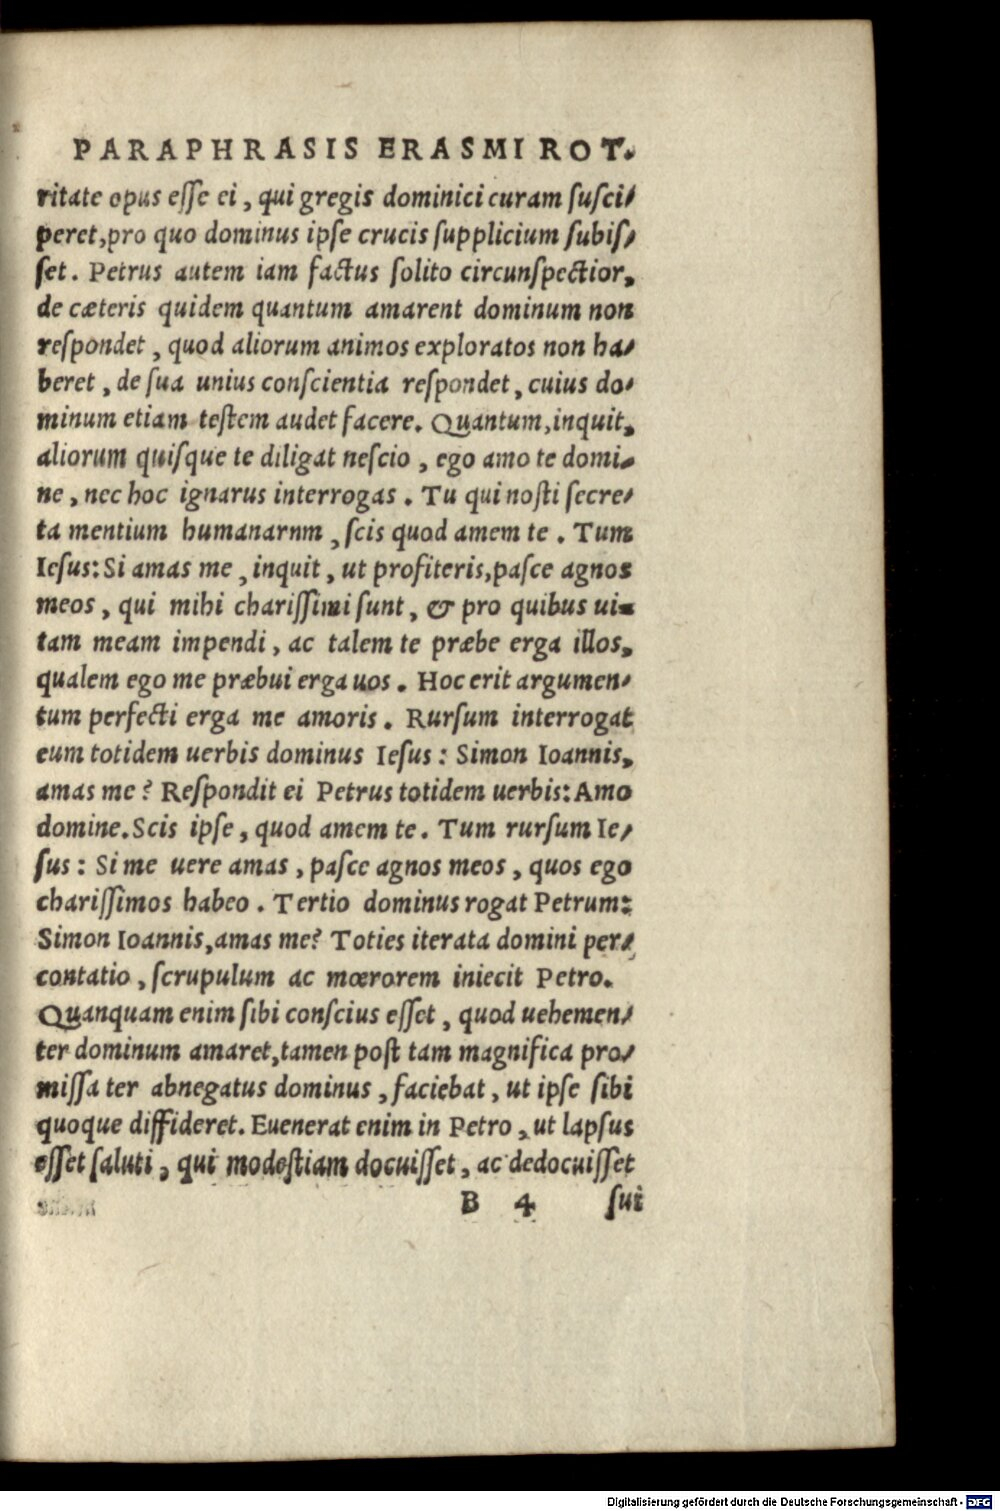 PARAPHRASIS ERASMI ROT.
ritate opus eſſe ei, qui gregis dominici curam ſuſci/
peret, pro quo dominus ipſe crucis ſupplicium ſubiſ/
ſet. Petrus autem iam factus ſolito circunſpectior,
de cæteris quidem quantum amarent dominum non
reſpondet, quod aliorum animos exploratos non ha/
beret, de ſua unius conſcientia reſpondet, cuius do/
minum etiam teſtem audet facere. Quantum, inquit,
aliorum quiſque te diligat neſcio, ego amo te domi/
ne, nec hoc ignarus interrogas. Tu qui noſti ſecre/
ta mentium humanarnm, ſcis quod amem te. Tum
Ieſus: Si amas me, inquit, ut profiteris, paſce agnos
meos, qui mihi chariſſimi ſunt, & pro quibus ui-
tam meam impendi, ac talem te præbe erga illos,
qualem ego me præbui erga uos. Hoc erit argumen/
tum perfecti erga me amoris. Rurſum interrogat
eum totidem uerbis dominus Ieſus: Simon Ioannis,
amas me? Reſpondit ei Petrus totidem uerbis: Amo
domine. Scis ipſe, quod amem te. Tum rurſum Ie/
ſus: Si me uere amas, paſce agnos meos, quos ego
chariſſimos habeo. Tertio dominus rogat Petrum:
Simon Ioannis, amas me? Toties iterata domini per/
contatio, ſcrupulum ac mœrorem iniecit Petro.
Quanquam enim ſibi conſcius eſſet, quod uehemen/
ter dominum amaret, tamen poſt tam magnifica pro/
miſſa ter abnegatus dominus, faciebat, ut ipſe ſibi
quoque diffideret. Euenerat enim in Petro, ut lapſus
eſſet ſaluti, qui modeſtiam docuiſſet, ac dedocuiſſet
B 4 ſui
Digitalisierung gefördert durch die Deutsche Forschungsgemeinschaft - DFG